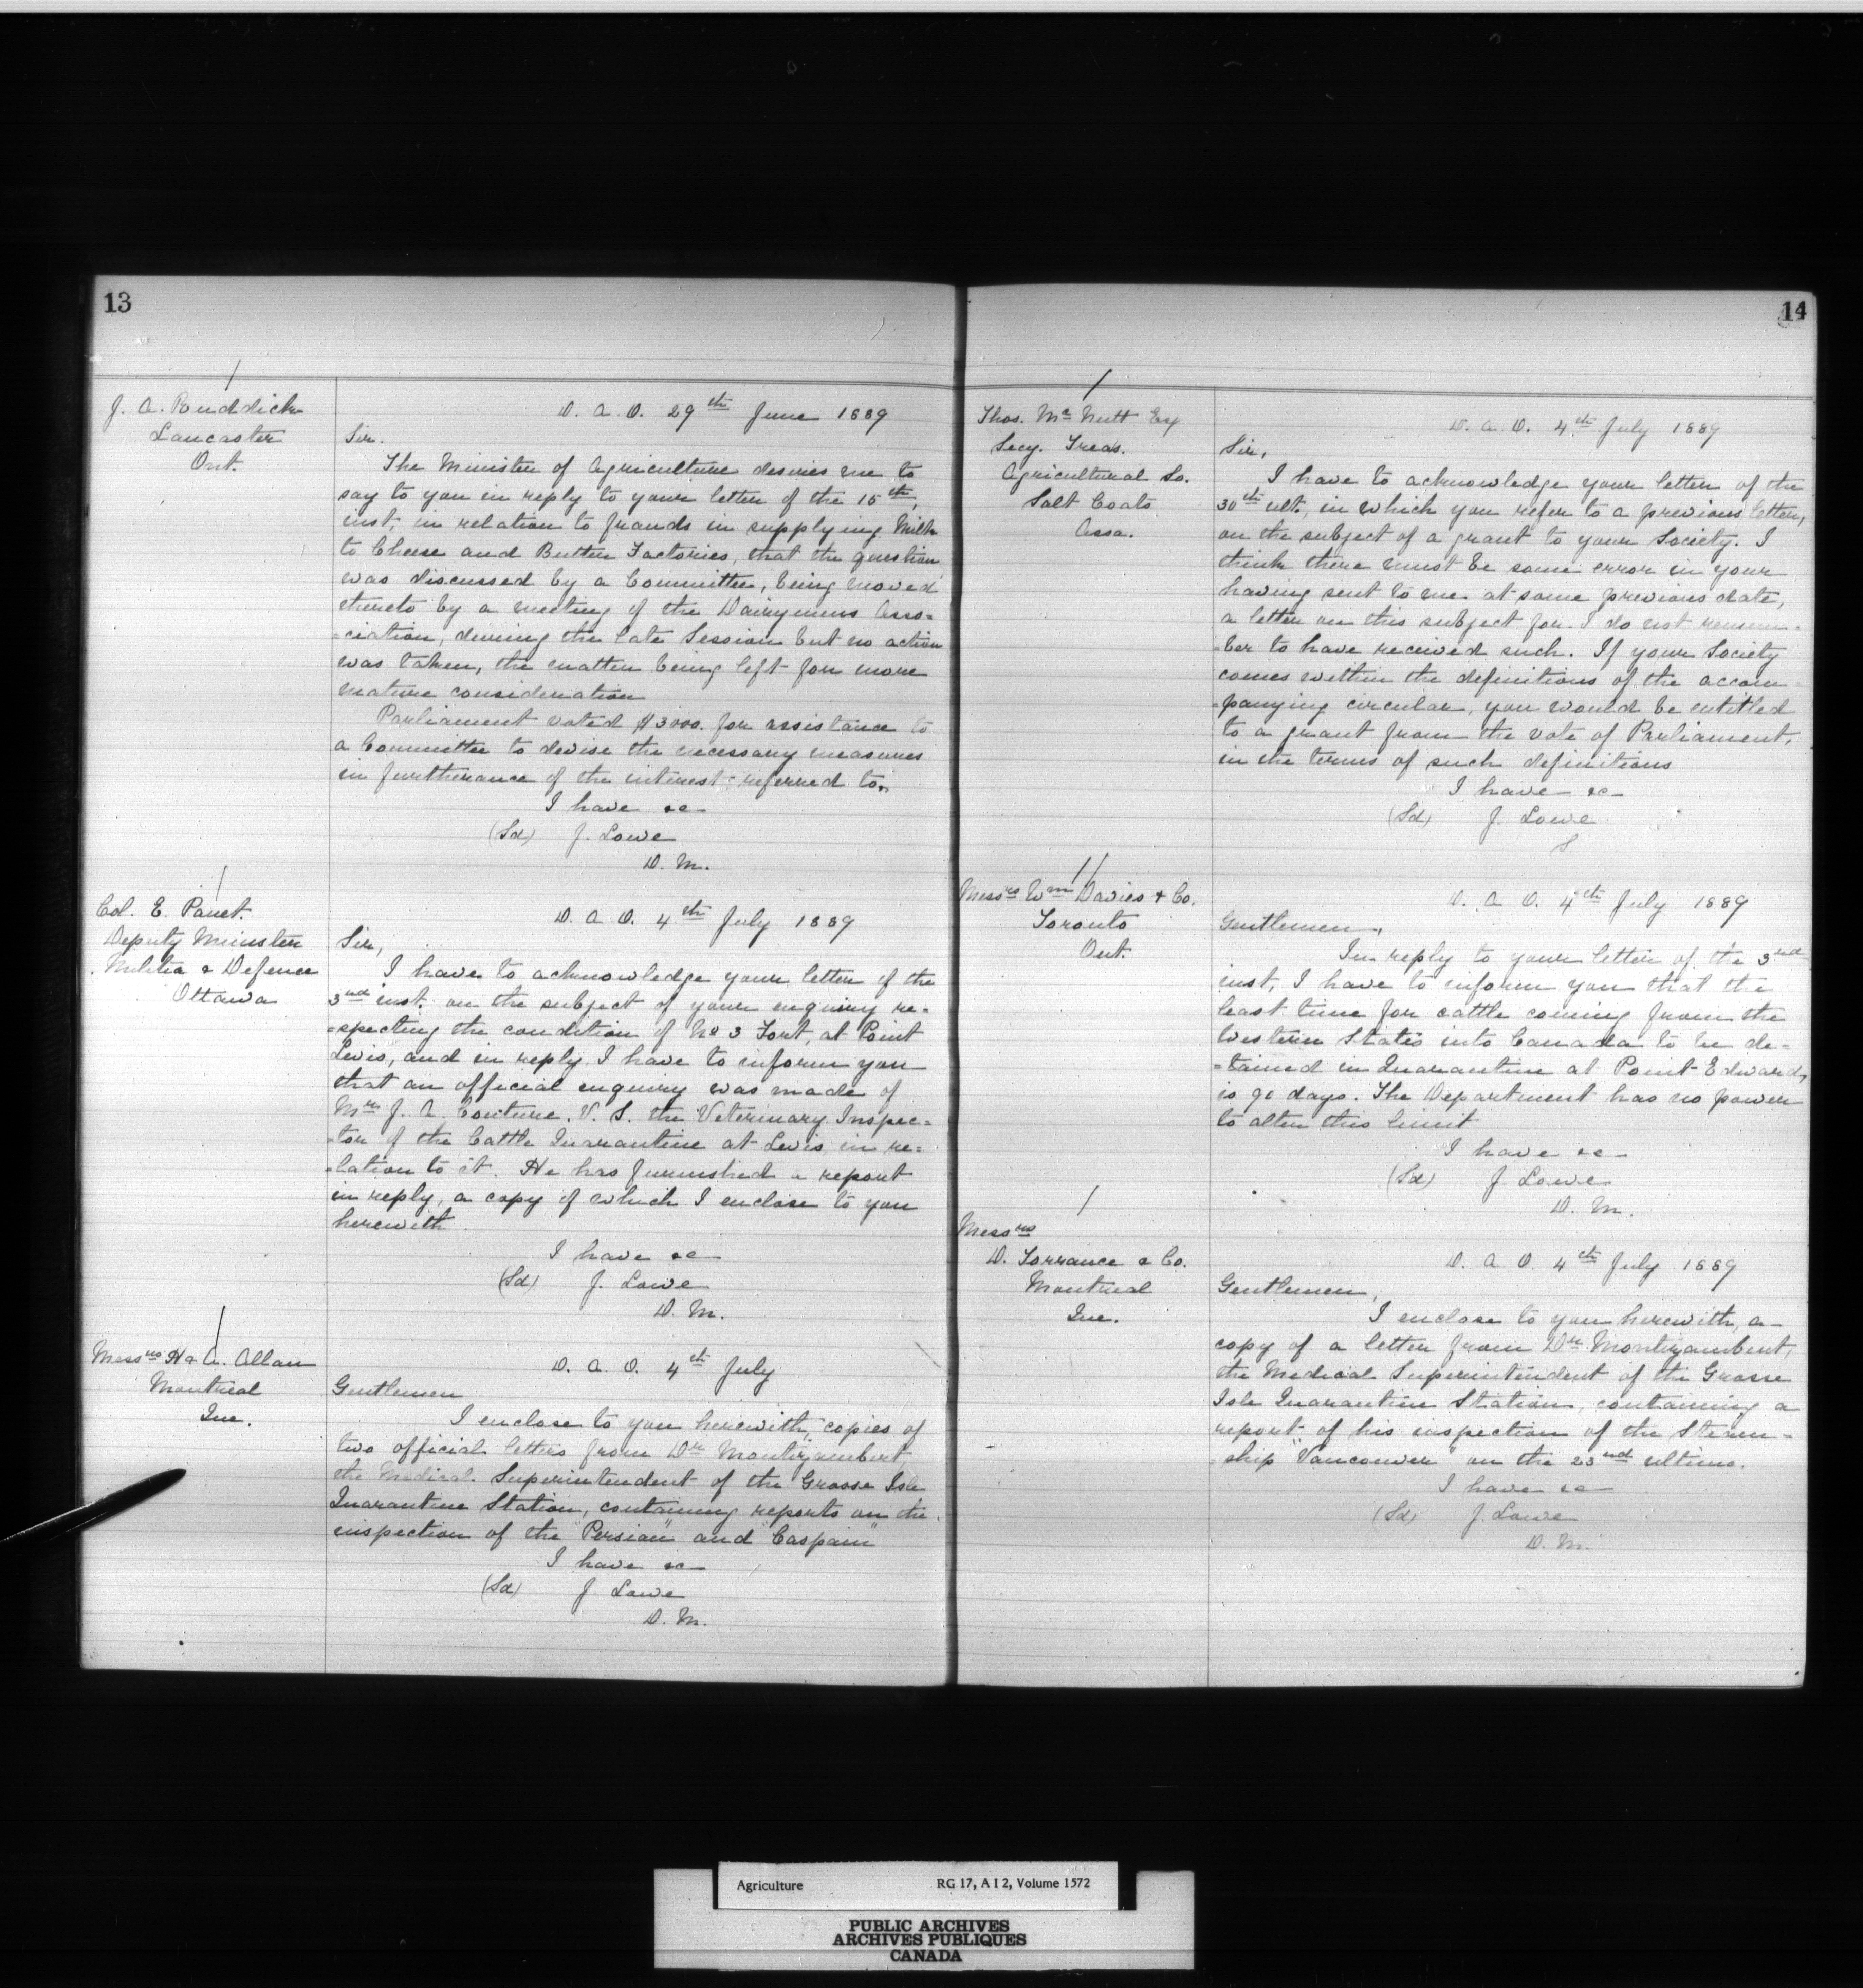 13
J. A. Ruddick
Lancaster
Ont.
D. A. O. 29th June 1889
Sir.
The Minister of Agriculture desires me to
say to you in reply to your letter of the 15th,
inst, in relation to frauds in supplying Milk
to Cheese and Butter Factories, that the question
was discussed by a Committee, being moved
thereto by a meeting of the Dairymens Asso-
=ciation, during the late Session but no action
was taken, the matter being left for more
mature consideration
Parliament voted $3000. for assistance to
a Committee to devise the necessary measures
in furtherance of the interest referred to.
I have &c
(Sd) J. Lowe
D. M.
Col. E. Panet.
Deputy Minister
Militia & Defence
Ottawa
D. A. O. 4th July 1889
Sir,
I have to acknowledge your letter of the
3nd inst. on the subject of your enquiry re-
=specting the condition of No 3 Fort, at Point
Levis, and in reply I have to inform you
that an official enquiry was made of
Mr J. A. Couture. V. S. the Veterinary Inspec=
=tor of the Cattle Quarantine at Levis, in re=
=lation to it. He has furnished a report
in reply, a copy of which I enclose to you
herewith
I have &c
(Sd) J. Lowe
D. M.
Messrs H & A. Allan
Montreal
Que.
D. A. O. 4th July
Gentlemen
I enclose to you herewith, copies of
two official letters from Dr Montizambert,
the Medical Superintendent of the Grosse Isle
Quarantine Station, containing reports on the
inspection of the "Persian" and "Caspain"
I have &c
(Sd) J. Lowe
D. M.
14
Thos. Mc Nutt Esq
Secy. Treas.
Agricultural So.
Salt Coats
Assa.
D. A. O. 4th July 1889
Sir,
I have to acknowledge your letter of the
30th ult, in which you refer to a previous letter,
on the subject of a grant to your Society. I
think there must be some error in your
having sent to me at some previous date,
a letter on this subject for I do not remem-
=ber to have received such. If your Society
comes within the definitions of the accom-
=panying circular, you would be entitled
to a grant from the vote of Parliament,
in the terms of such definitions
I have &c
(Sd) J. Lowe
S.
Messrs Wm Davies & Co.
Toronto
Ont.
D. A. O. 4th July 1889
Gentlemen,
In reply to your letter of the 3nd
inst, I have to inform you that the
least time for cattle coming from the
Western States into Canada to be de=
=tained in Quarantine at Point Edward,
is 90 days. The Department has no power
to alter this limit
I have &c
(Sd) J. Lowe
D. M.
Messrs
D. Torrance & Co.
Montreal
Que.
D. A. O. 4th July 1889
Gentlemen,
I enclose to you herewith, a
copy of a letter from Dr Montizambert,
the Medical Superintendent of the Grosse
Isle Quarantine Station, containing a
report of his inspection of the Steam-
=ship "Vancouver" on the 23nd ultimo.
I have &c
(Sd) J. Lowe
D. M.
Agriculture RG 17, A I 2, Volume 1572
PUBLIC ARCHIVES
ARCHIVES PUBLIQUES
CANADA